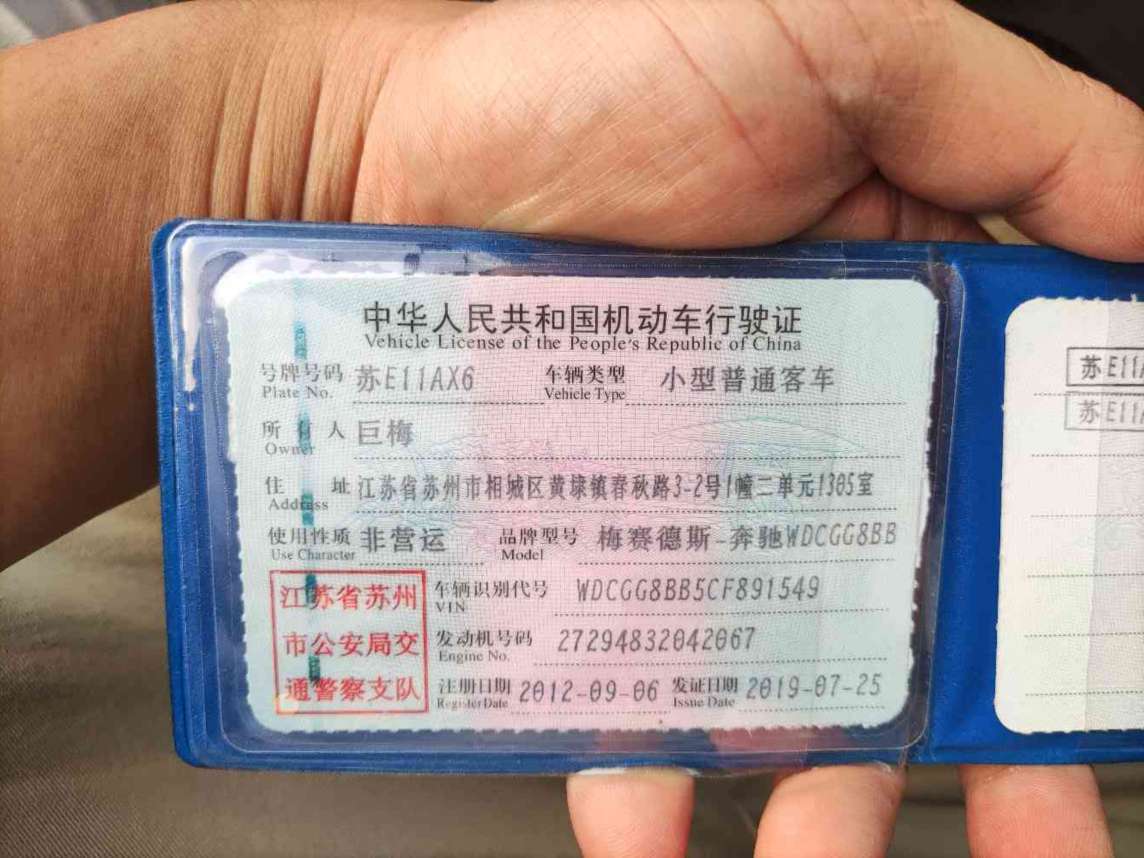 中华人民共和国机动车行驶证
Vehicle License of the People's Republic of China
号牌号码 苏E11AX6 车辆类型 小型普通客车
Plate No. Vehicle Type
所有人 巨梅
Owner
住址 江苏省苏州市相城区黄埭镇春秋路3-2号1幢三单元1305室
Address
使用性质 非营运 品牌型号 梅赛德斯-奔驰WDCGG8BB
Use Character Model
江苏省苏州
市公安局交
通警察支队
车辆识别代号 WDCGG8BB5CF891549
VIN
发动机号码 27294832042067
Engine No.
注册日期 2012-09-06 发证日期 2019-07-25
Register Date Issue Date
苏E11A
苏E11A